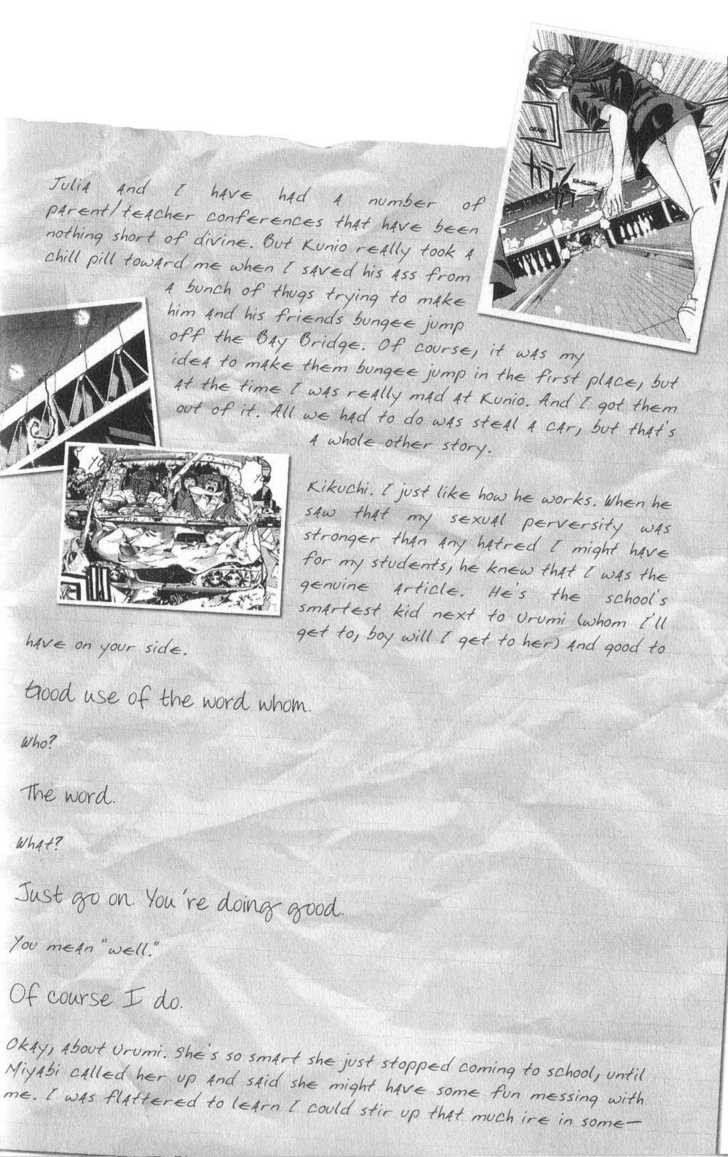 Julia and I have had a number of
parent/teacher conferences that have been
nothing short of divine. But Kunio really took a
chill pill toward me when I saved his ass from
a bunch of thugs trying to make
him and his friends bungee jump
off the Bay Bridge. Of course, it was my
idea to make them bungee jump in the first place, but
at the time I was really mad at Kunio. And I got them
out of it. All we had to do was steal a car, but that's
a whole other story.
Kikuchi. I just like how he works. When he
saw that my sexual perversity was
stronger than any hatred I might have
for my students, he knew that I was the
genuine article. He's the school's
smartest kid next to Urumi (whom I'll
get to, boy will I get to her) and good to
have on your side.
Good use of the word whom.
Who?
The word.
What?
Just go on. You're doing good.
You mean "well."
Of course I do.
Okay, about Urumi. She's so smart she just stopped coming to school, until
Miyabi called her up and said she might have some fun messing with
me. I was flattered to learn I could stir up that much ire in some—